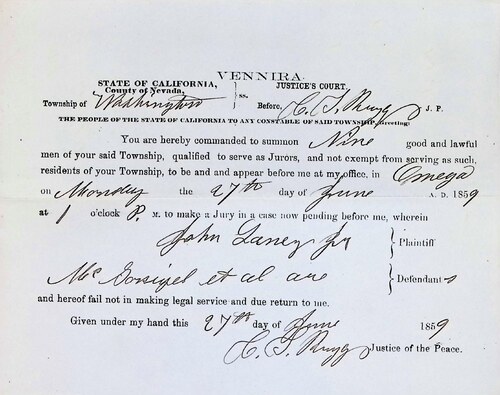 VENNIRA.
STATE OF CALIFORNIA, } JUSTICE'S COURT.
County of Nevada, } ss.
Township of Washington } Before, C. S. Rugg J. P.
THE PEOPLE OF THE STATE OF CALIFORNIA TO ANY CONSTABLE OF SAID TOWNSHIP, Greeting:
You are hereby commanded to summon Nine good and lawful
men of your said Township, qualified to serve as Jurors, and not exempt from serving as such,
residents of your Township, to be and appear before me at my office, in Omega
on Monday the 27th day of June A. D. 1859
at 1 o'clock P. M. to make a Jury in a case now pending before me, wherein
John } Plaintiff
et al are } Defendants
and hereof fail not in making legal service and due return to me.
Given under my hand this 27th day of June 1859
C. S. Rugg Justice of the Peace.